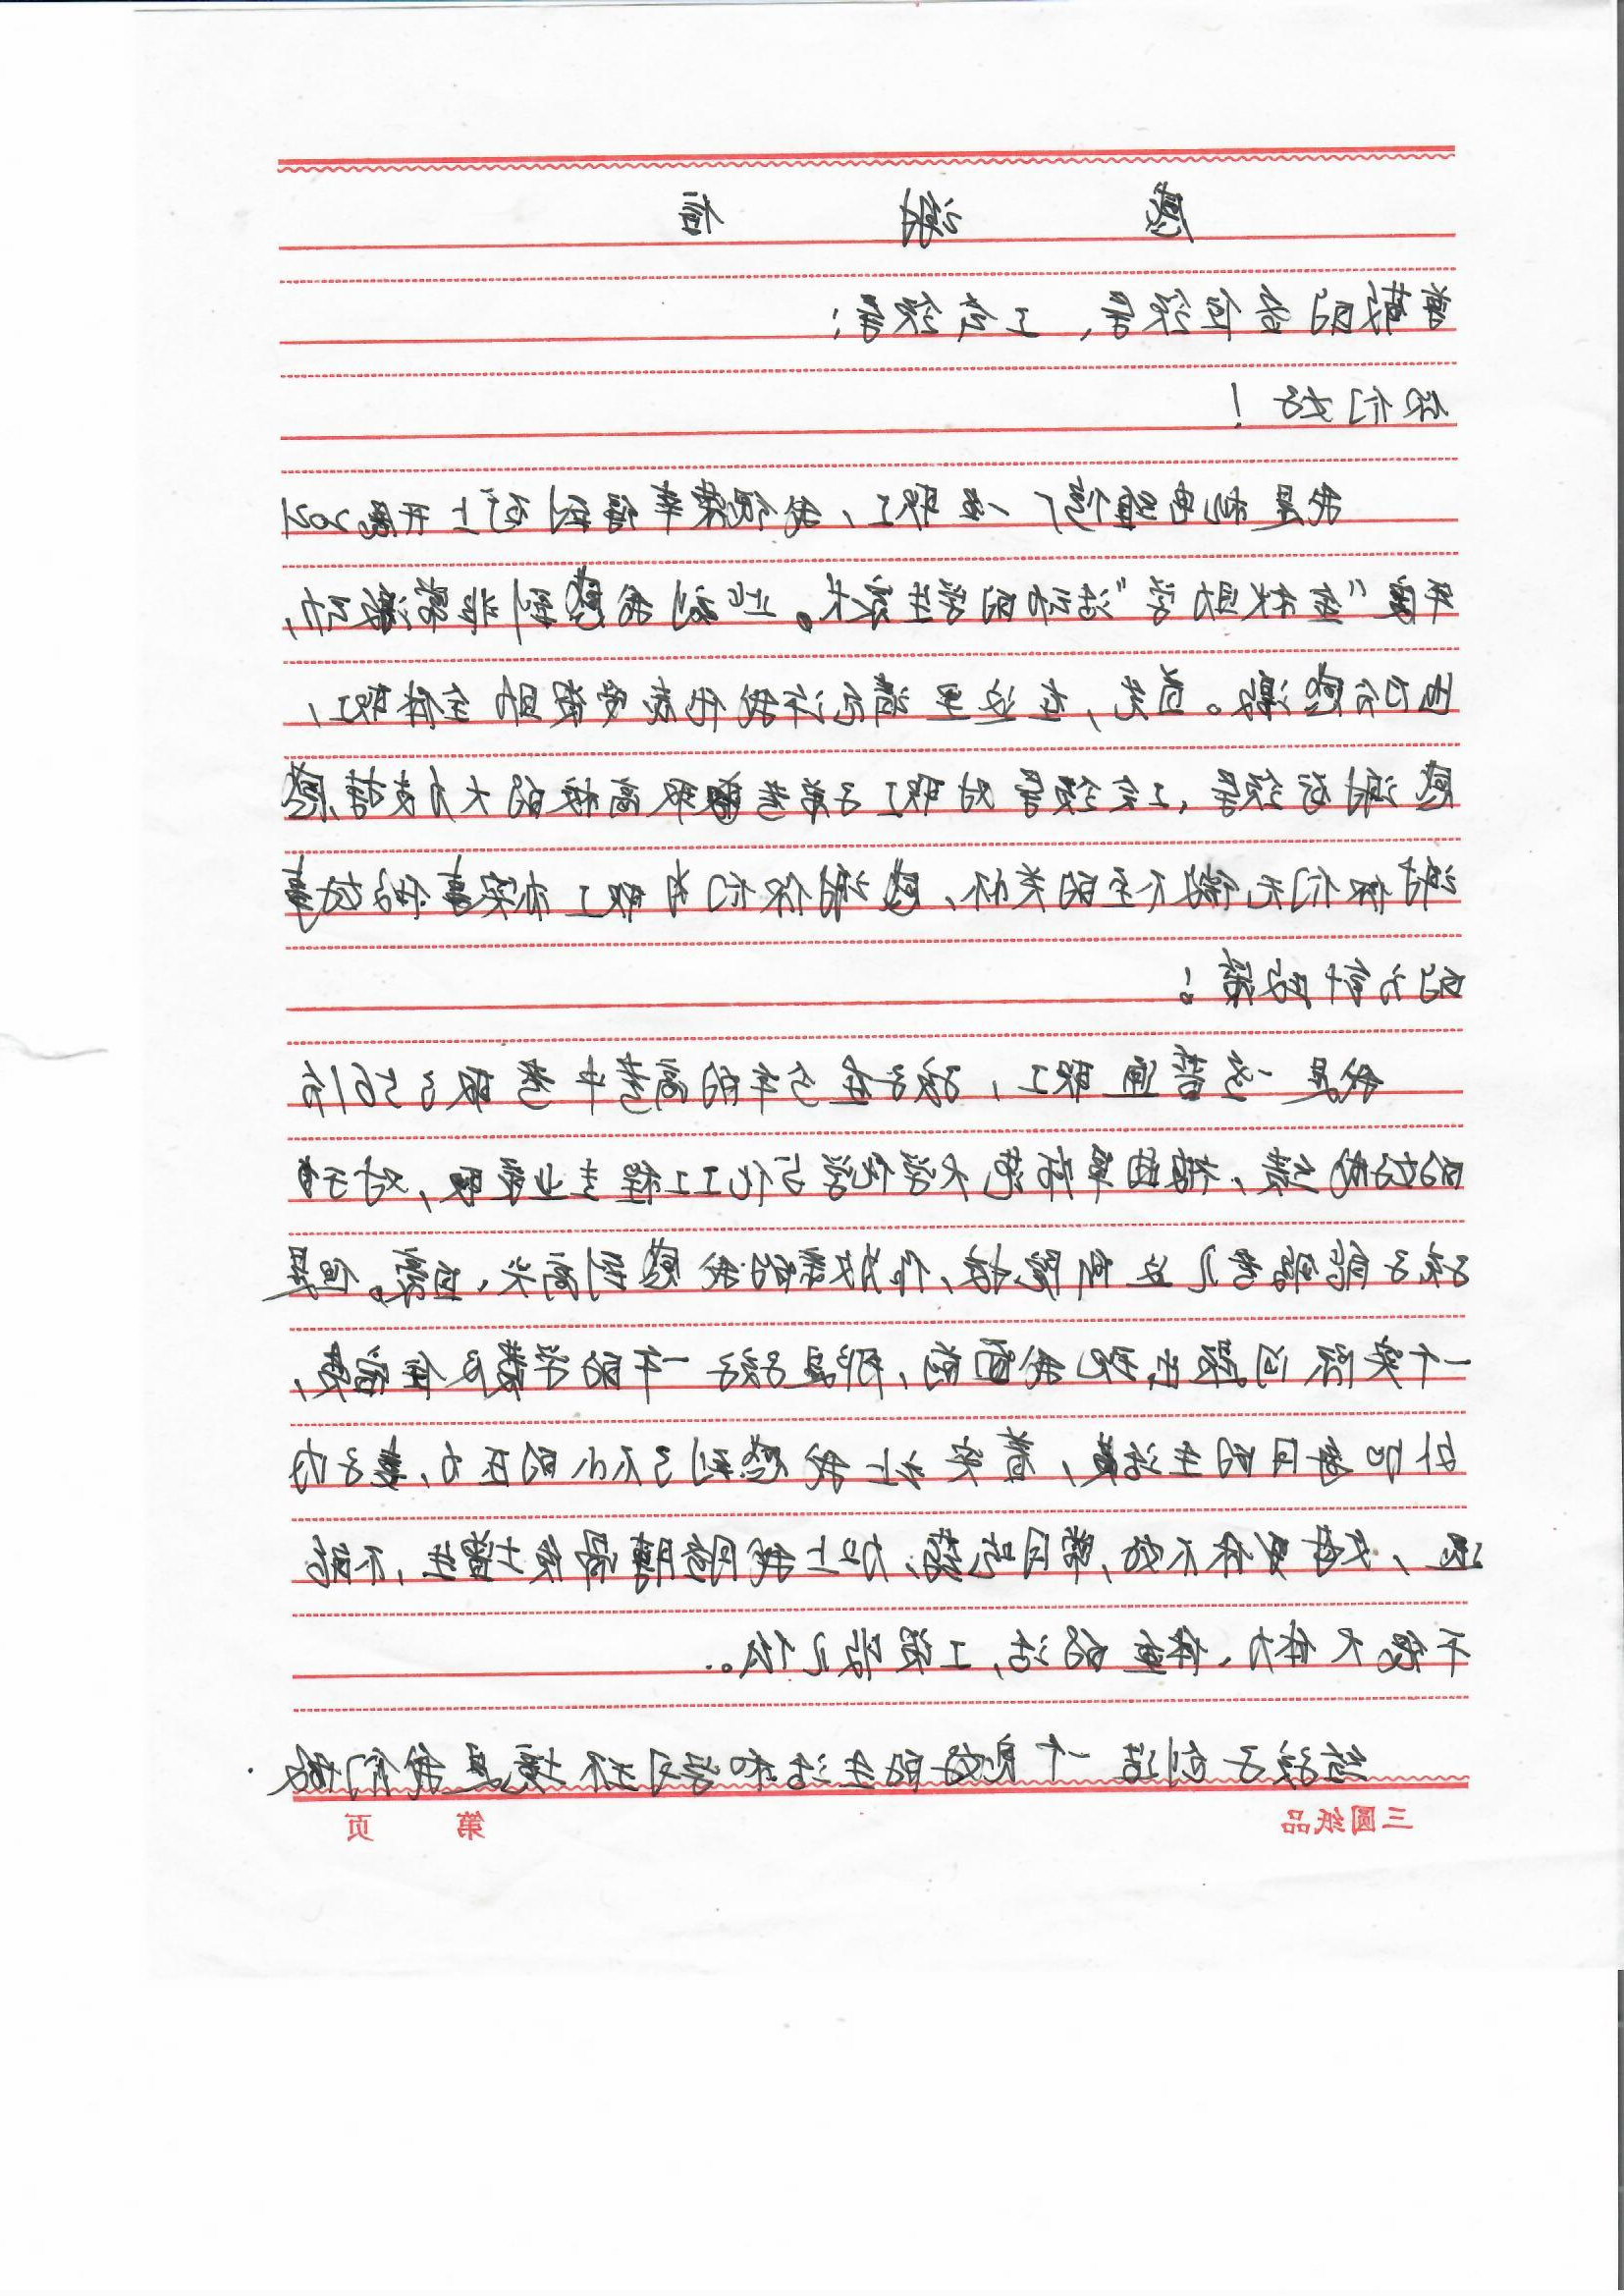 感谢信
尊敬的各位领导、工会领导：
你们好！
我是机电维修厂一名职工，我很荣幸得到了上开展2021
年度“金秋助学”活动的学生家长。此刻我感到非常激动，
也万分感激。首先，在这里请允许我代表受资助全体职工，
感谢各领导、工会领导对职工子弟考取高校的大力支持，感
谢你们无微不至的关怀，感谢你们为职工办实事做好事
的方针政策。
我是一名普通职工，孩子在今年的高考中考取了561分
的好成绩，被阜师范大学化学与化工工程专业录取，对于
孩子能够考入这所院校，作为家长的我感到高兴、自豪。但是
一个实际问题出现我面前，那是孩子一年的学费及住宿费，
外加每月的生活费，着实让我感到了不小的压力，妻子内
退，父母身体不好，常年吃药，加上我腰椎增生，不能
干很大体力、体重的活，工资收入低。
给孩子创造一个良好的生活和学习环境是我们做
三圆纸品 第 页